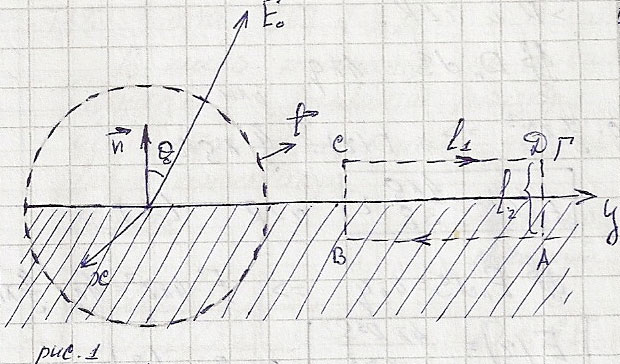 E₀
n
θ
f
C
l₁
D
Г
l₂
y
B
A
x
рис. 1